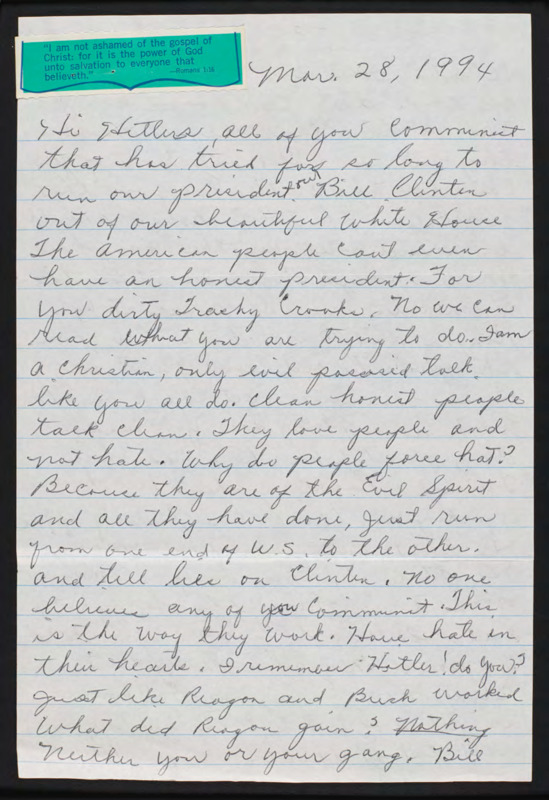 "I am not ashamed of the gospel of
Christ: for it is the power of God
unto salvation to everyone that
believeth." —Romans 1:16
Mar. 28, 1994
Hi Hitlers, all of you Communist
that has tried for so long to
run our president our Bill Clinton
out of our beautiful White House
The American people cant even
have an honest president. For
you dirty Trashy Crooks. No we can
read what you are trying to do. I am
a Christian, only evil talk
like you all do. Clean honest people
talk clean. They love people and
not hate. Why do people force hat?
Because they are of the Evil Spirit
and all they have done, Just run
from one end of U.S. to the other.
and tell lies on Clinton. No one
believes any of you Communit. This
is the way they work. Have hate in
their hearts. I remember Hitler! do you?
Just like Reagon and Bush worked
What did Reagon gain? Nothing
Neither you or your gang. Bill